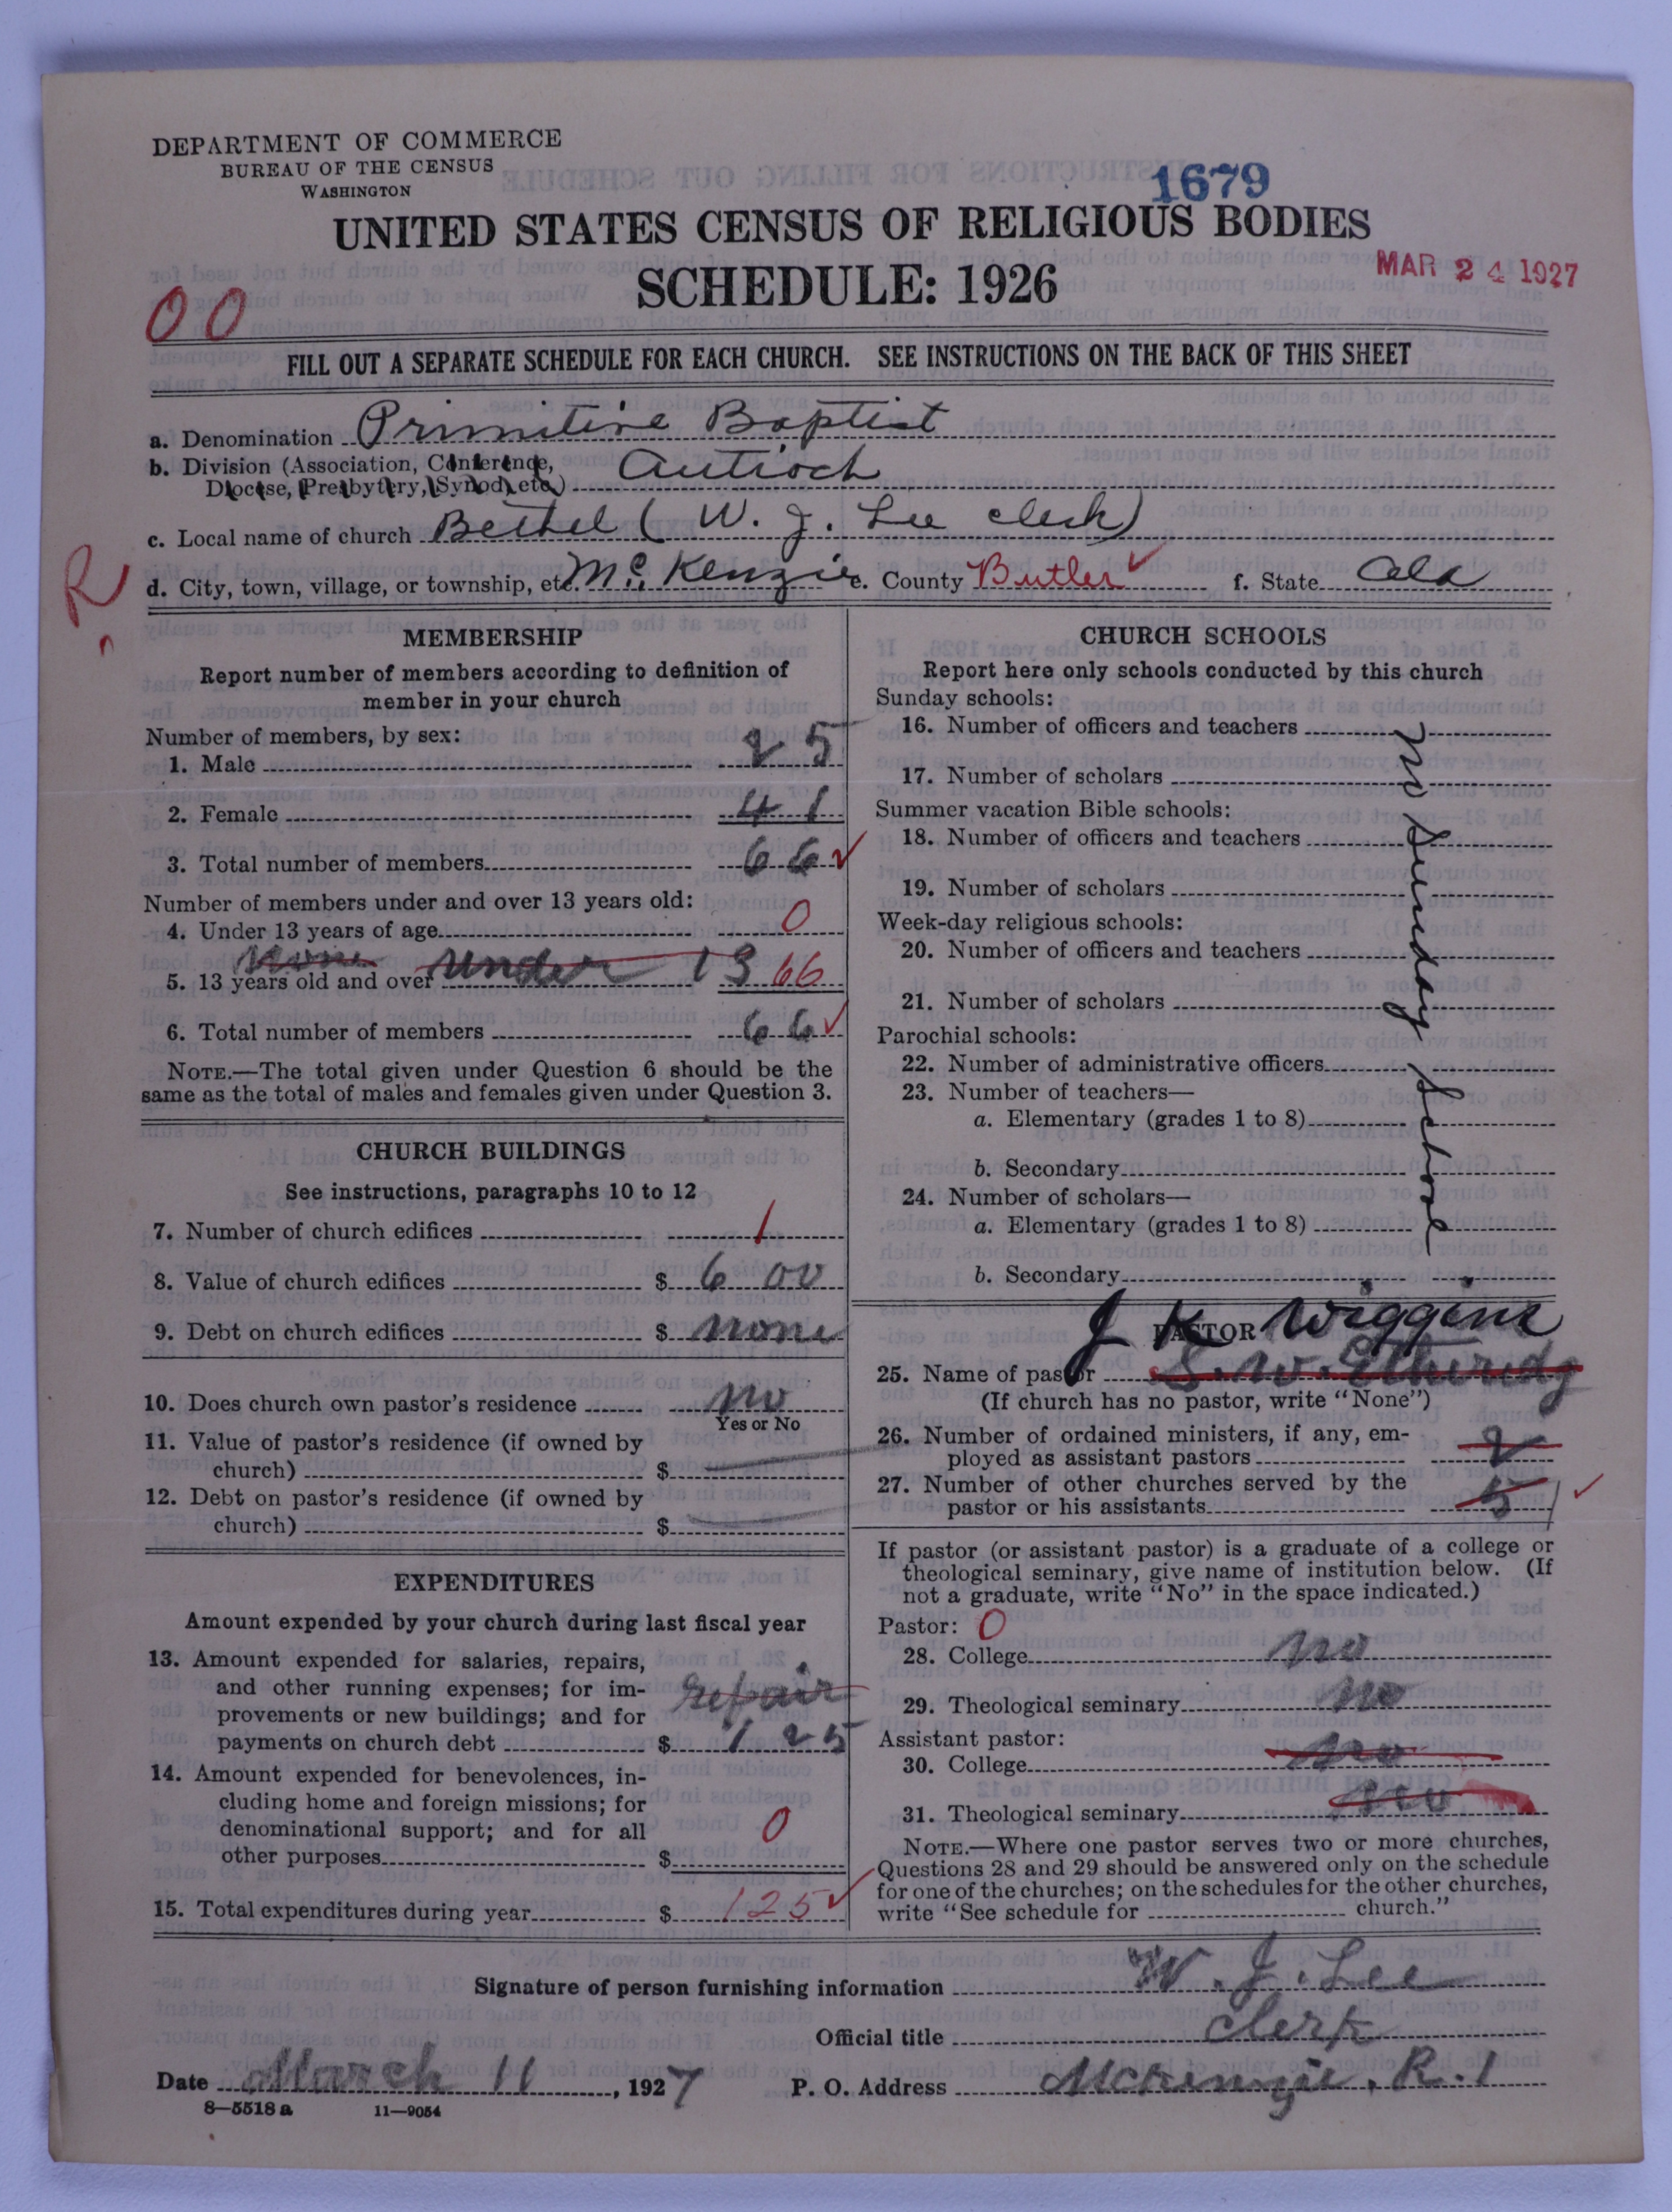 DEPARTMENT OF COMMERCE
BUREAU OF THE CENSUS
WASHINGTON
1679
UNITED STATES CENSUS OF RELIGIOUS BODIES
SCHEDULE: 1926
MAR 24 1927
00
FILL OUT A SEPARATE SCHEDULE FOR EACH CHURCH. SEE INSTRUCTIONS ON THE BACK OF THIS SHEET
a. Denomination Primitive Baptist
b. Division (Association, Conference, Diocese, Presbytery, Synod, etc.) Antioch
c. Local name of church Bethel (W. J. Lee clerk)
R
d. City, town, village, or township, etc. McKenzie e. County Butler f. State Ala
MEMBERSHIP
Report number of members according to definition of
member in your church
Number of members, by sex:
1. Male 25
2. Female 41
3. Total number of members 66
Number of members under and over 13 years old:
4. Under 13 years of age 0
None under 13
5. 13 years old and over 66
6. Total number of members 66
NOTE.—The total given under Question 6 should be the
same as the total of males and females given under Question 3.
CHURCH BUILDINGS
See instructions, paragraphs 10 to 12
7. Number of church edifices 1
8. Value of church edifices $ 600
9. Debt on church edifices $ none
10. Does church own pastor's residence no
Yes or No
11. Value of pastor's residence (if owned by
church) $
12. Debt on pastor's residence (if owned by
church) $
EXPENDITURES
Amount expended by your church during last fiscal year
13. Amount expended for salaries, repairs,
and other running expenses; for im-
provements or new buildings; and for repair
payments on church debt $ 125
14. Amount expended for benevolences, in-
cluding home and foreign missions; for
denominational support; and for all
other purposes $ 0
15. Total expenditures during year $ 125
CHURCH SCHOOLS
Report here only schools conducted by this church
Sunday schools:
16. Number of officers and teachers
17. Number of scholars
Summer vacation Bible schools:
18. Number of officers and teachers
19. Number of scholars
Week-day religious schools:
20. Number of officers and teachers
21. Number of scholars
Parochial schools:
22. Number of administrative officers
23. Number of teachers—
a. Elementary (grades 1 to 8)
b. Secondary
24. Number of scholars—
a. Elementary (grades 1 to 8)
b. Secondary
no Sunday School
PASTOR
J K Wiggins
25. Name of pastor S. W. Etheridg
(If church has no pastor, write "None")
26. Number of ordained ministers, if any, em-
ployed as assistant pastors 2
27. Number of other churches served by the
pastor or his assistants 5 1
If pastor (or assistant pastor) is a graduate of a college or
theological seminary, give name of institution below. (If
not a graduate, write "No" in the space indicated.)
Pastor: 0
28. College no
29. Theological seminary no
Assistant pastor:
30. College no
31. Theological seminary no
NOTE.—Where one pastor serves two or more churches,
Questions 28 and 29 should be answered only on the schedule
for one of the churches; on the schedules for the other churches,
write "See schedule for church."
Signature of person furnishing information W. J. Lee
Official title Clerk
Date March 11, 1927 P. O. Address McKenzie, R. 1
8—5518 a 11—9054